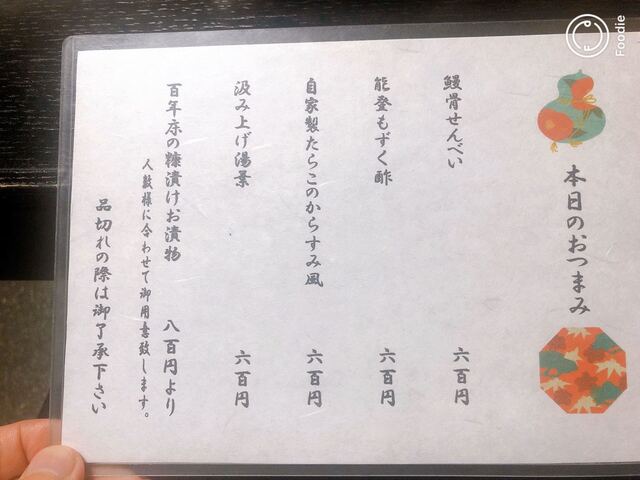 本日のおつまみ
鰻骨せんべい 六百円
能登もずく酢 六百円
自家製たらこのからすみ風 六百円
汲み上げ湯葉 六百円
百年床の糠漬けお漬物 八百円より
人数様に合わせて御用意致します。
品切れの際は御了承下さい
Foodie